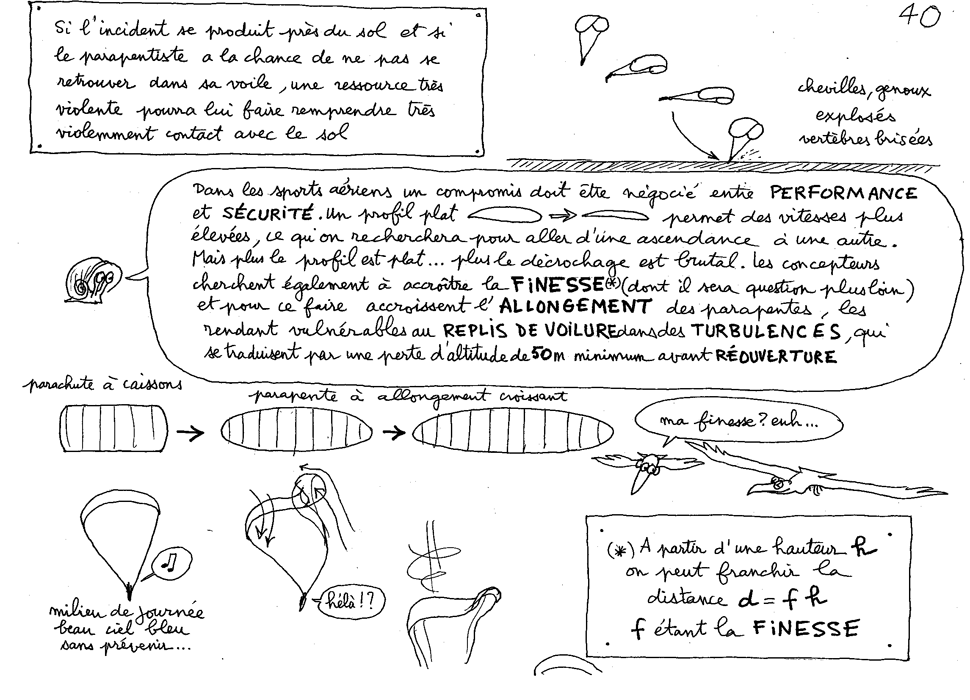 40
Si l'incident se produit près du sol et si
le parapentiste a la chance de ne pas se
retrouver dans sa voile, une ressource très
violente pourra lui faire remprendre très
violemment contact avec le sol
chevilles, genoux
explosés
vertèbres brisées
Dans les sports aériens un compromis doit être négocié entre PERFORMANCE
et SÉCURITÉ. Un profil plat permet des vitesses plus
élevées, ce qu'on recherchera pour aller d'une ascendance à une autre.
Mais plus le profil est plat... plus le décrochage est brutal. Les concepteurs
cherchent également à accroître la FINESSE(*) (dont il sera question plus loin)
et pour ce faire accroissent l'ALLONGEMENT des parapentes, les
rendant vulnérables au REPLIS DE VOILURE dans des TURBULENCES, qui
se traduisent par une perte d'altitude de 50m minimum avant RÉOUVERTURE
parachute à caissons
parapente à allongement croissant
ma finesse? euh...
milieu de journée
beau ciel bleu
sans prévenir...
hélà!?
(*) A partir d'une hauteur h
on peut franchir la
distance d = f h
f étant la FINESSE